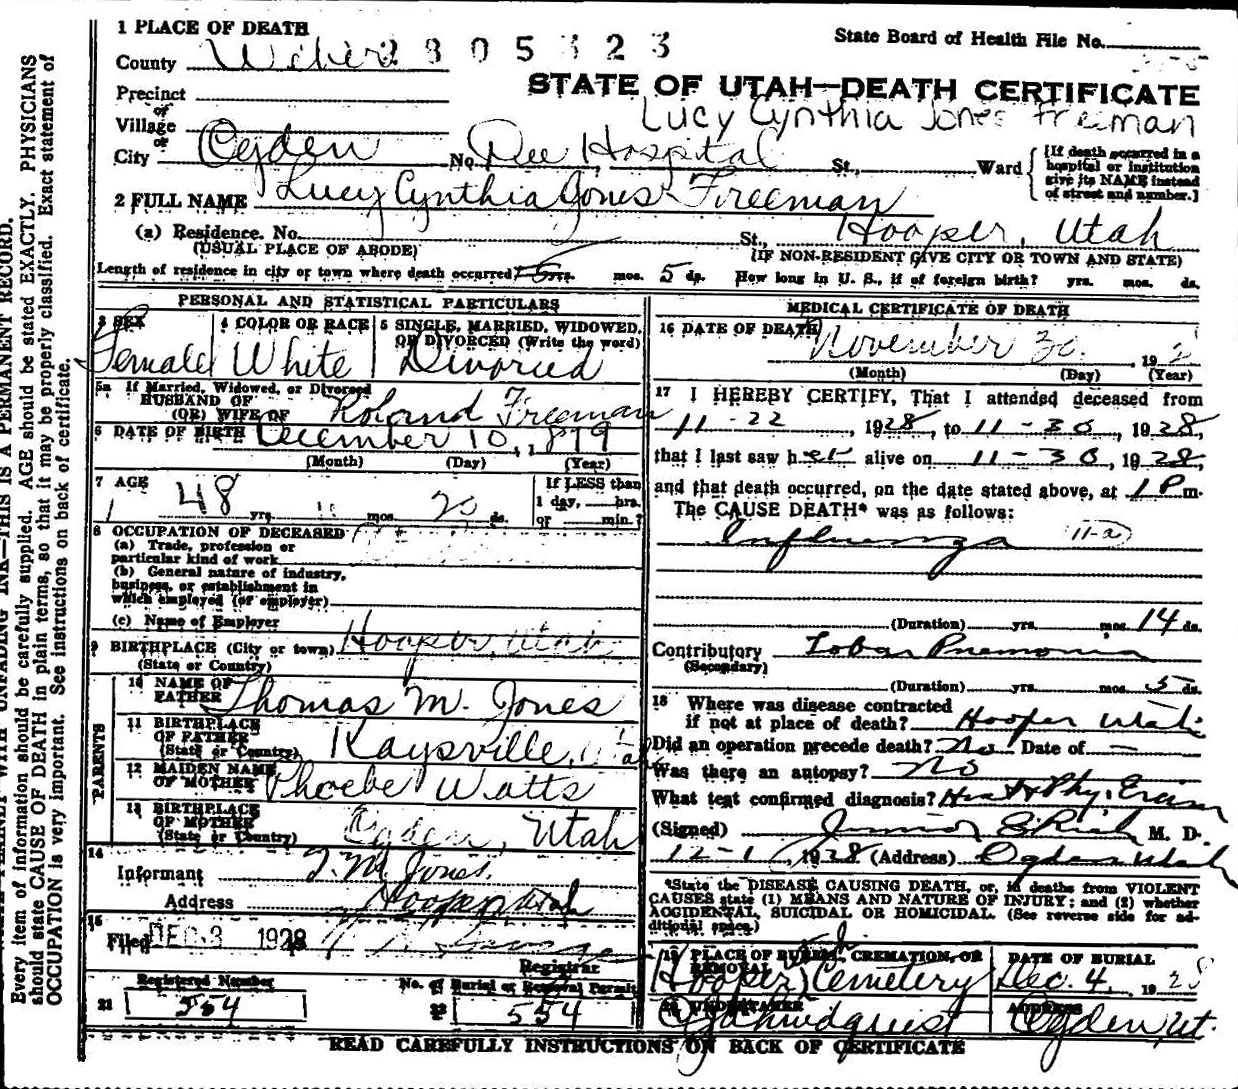 1 PLACE OF DEATH
State Board of Health File No.
County Weber 2805323
STATE OF UTAH—DEATH CERTIFICATE
Precinct
Lucy Cynthia Jones Freeman
or
Village
or
City Ogden No. Dee Hospital St., Ward
[If death occurred in a hospital or institution give its NAME instead of street and number.]
2 FULL NAME Lucy Cynthia Jones Freeman
(a) Residence. No. St., Hooper, Utah
(USUAL PLACE OF ABODE) (IF NON-RESIDENT GIVE CITY OR TOWN AND STATE)
Length of residence in city or town where death occurred yrs. mos. 5 ds. How long in U. S., if of foreign birth? yrs. mos. ds.
PERSONAL AND STATISTICAL PARTICULARS
3 SEX 4 COLOR OR RACE 5 SINGLE, MARRIED, WIDOWED, OR DIVORCED (Write the word)
Female White Divorced
5a If Married, Widowed, or Divorced
HUSBAND OF
(OR) WIFE OF Roland Freeman
6 DATE OF BIRTH December 10, 1879
(Month) (Day) (Year)
7 AGE 48 yrs. 11 mos. 20 ds.
If LESS than
1 day, hrs.
or min.?
8 OCCUPATION OF DECEASED
(a) Trade, profession or
particular kind of work
(b) General nature of industry,
business, or establishment in
which employed (or employer)
(c) Name of Employer
9 BIRTHPLACE (City or town) Hooper, Utah
(State or Country)
PARENTS
10 NAME OF
FATHER Thomas M. Jones
11 BIRTHPLACE
OF FATHER
(State or Country) Kaysville, Utah
12 MAIDEN NAME
OF MOTHER Phoebe Watts
13 BIRTHPLACE
OF MOTHER
(State or Country) Ogden, Utah
14
Informant T. M. Jones.
Address Hooper Utah
15
Filed DEC 3 1928
Registrar
Registered Number No. of Burial or Removal Permit
21 554 22 554
MEDICAL CERTIFICATE OF DEATH
16 DATE OF DEATH November 30, 192
(Month) (Day) (Year)
17 I HEREBY CERTIFY, That I attended deceased from
11-22, 1928, to 11-30, 1928,
that I last saw her alive on 11-30, 1928,
and that death occurred, on the date stated above, at 1 P m.
The CAUSE DEATH* was as follows:
Influenza 11-a
(Duration) yrs. mos. 14 ds.
Contributory Lobar Pnemonia
(Secondary)
(Duration) yrs. mos. 5 ds.
18 Where was disease contracted
if not at place of death? Hooper Utah
Did an operation precede death? No Date of —
Was there an autopsy? No
What test confirmed diagnosis? Hist & Phy. Exam
(Signed) Junior E Rich M. D.
12-1, 1928 (Address) Ogden Utah
*State the DISEASE CAUSING DEATH, or, in deaths from VIOLENT
CAUSES state (1) MEANS AND NATURE OF INJURY; and (2) whether
ACCIDENTAL, SUICIDAL OR HOMICIDAL. (See reverse side for ad-
ditional space.)
19 PLACE OF BURIAL, CREMATION, OR REMOVAL DATE OF BURIAL
Hooper Cemetery Dec. 4, 1928
20 UNDERTAKER ADDRESS
Ogden, Ut.
READ CAREFULLY INSTRUCTIONS ON BACK OF CERTIFICATE
WITH UNFADING INK—THIS IS A PERMANENT RECORD.
Every item of information should be carefully supplied. AGE should be stated EXACTLY. PHYSICIANS
should state CAUSE OF DEATH in plain terms, so that it may be properly classified. Exact statement of
OCCUPATION is very important. See instructions on back of certificate.